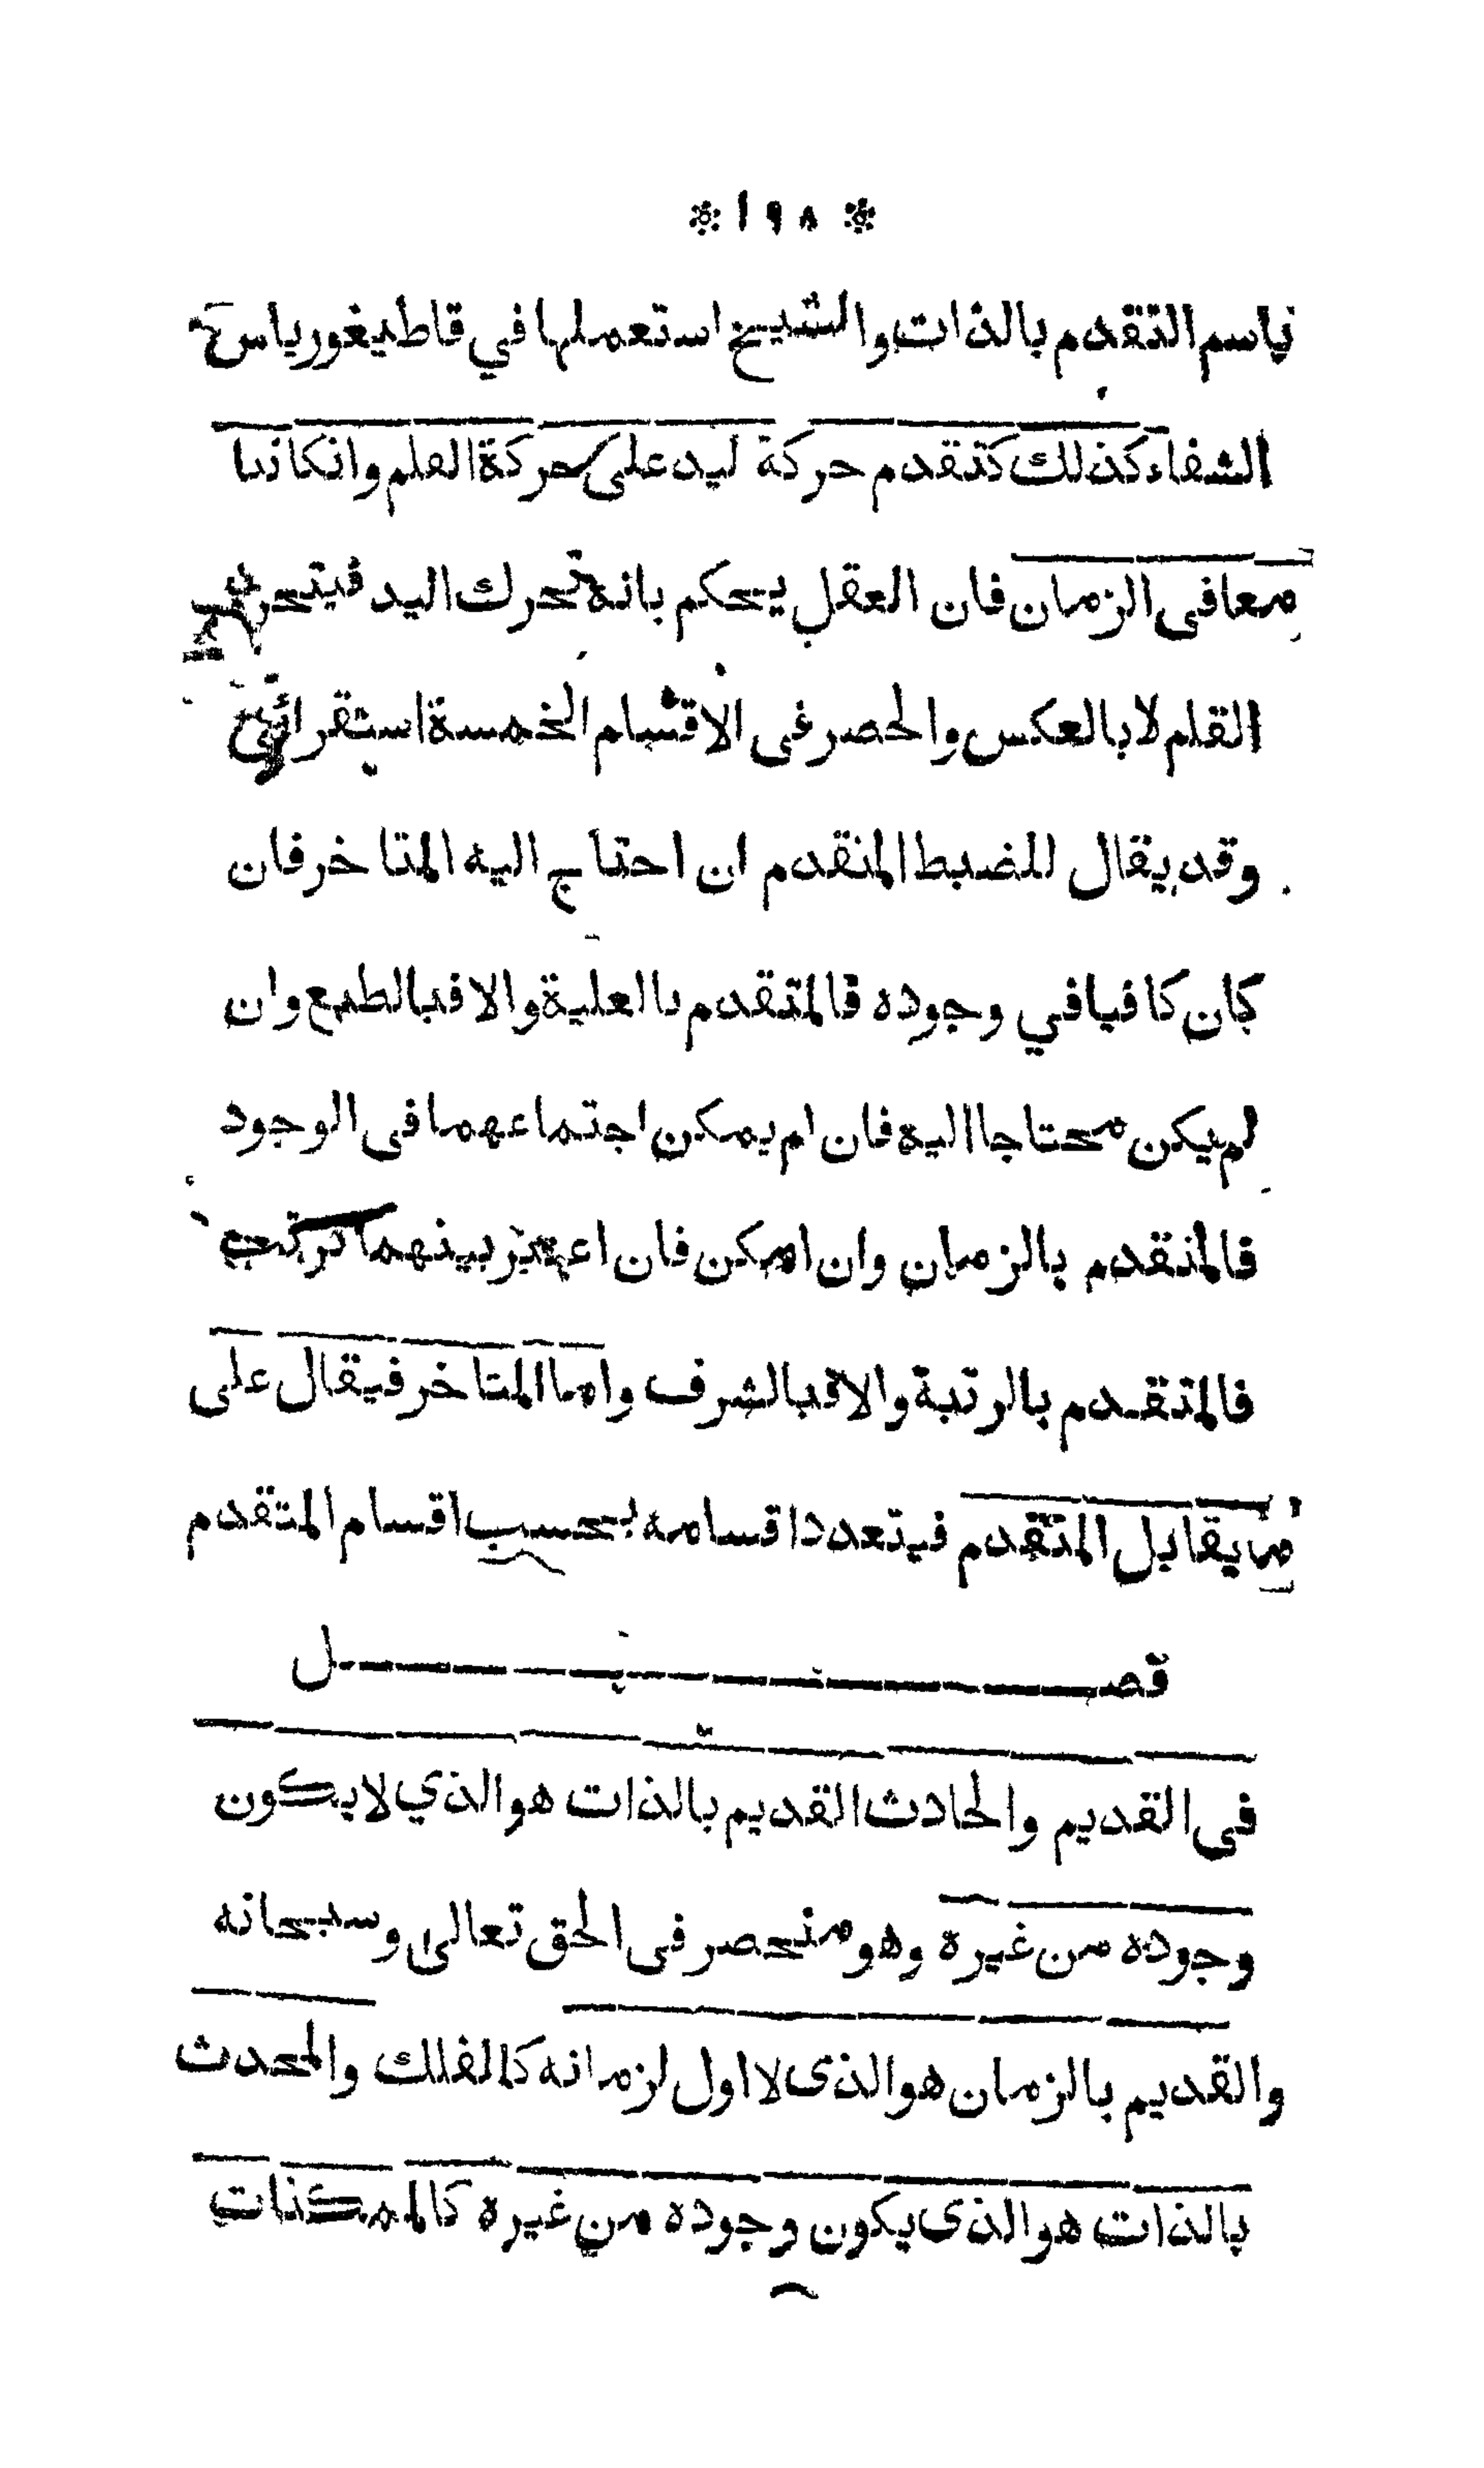 * ١٩٨ *
باسم التقدم بالذات والشيخ استعملها في قاطيغورياس
الشفاء كذلك كتقدم حركة ليد على حركة القلم وانكانتا
معا فى الزمان فان العقل يحكم بانه تحرك اليد فيتحرك
القلم لا بالعكس والحصر فى الاقسام الخمسة استقرائي
وقد يقال للضبط المتقدم ان احتاج اليه المتاخر فان
كان كافيا في وجوده فالمتقدم بالعلية والا فبالطبع وان
لم يكن محتاجا اليه فان ام يمكن اجتماعهما فى الوجود
فالمتقدم بالزمان وان امكن فان اعتبر بينهما ترتب
فالمتقدم بالرتبة والا فبالشرف واما المتاخر فيقال على
ما يقابل المتقدم فيتعدد اقسامه بحسب اقسام المتقدم
فصل
فى القديم والحادث القديم بالذات هو الذي لا يكون
وجوده من غيره وهو منحصر فى الحق تعالى وسبحانه
والقديم بالزمان هو الذى لا اول لزمانه كالفلك والمحدث
بالذات هو الذى يكون وجوده من غيره كالممكنات